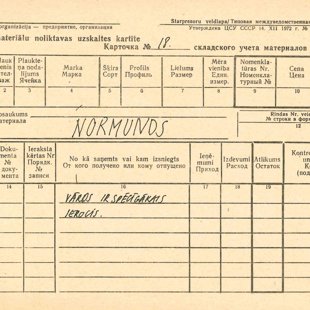 organizācija — предприятие, организация
Starpresoru veidlapa/Типовая междуведомственная
Утверждена ЦСУ СССР 14. XII 1972 г. №
materiālu noliktavas uzskaites kartīte
Карточка № 18. складского учета материалов
Marka Марка
Šķira Сорт
Profils Профиль
Lielums Размер
Mēra vienība Един. измерен.
Nomenklatūras Nr. Номенклатурный №
Cena Цена
Plauktenis Стеллаж
Plauktenodalījums Ячейка
2 3 4 5 6 7 8 9 10
nosaukums
материала
NORMUNDS
Rindas Nr. № строки в форме
12
Dokumenta № документа
Ieraksta kārtas Nr Порядк. № записи
No kā saņemts vai kam izsniegts
От кого получено или кому отпущено
Ieņēmumi Приход
Izdevumi Расход
Atlikums Остаток
14 15 16 17 18 19
VĀRDS IR SPĒCĪGĀKAIS
IEROCIS.